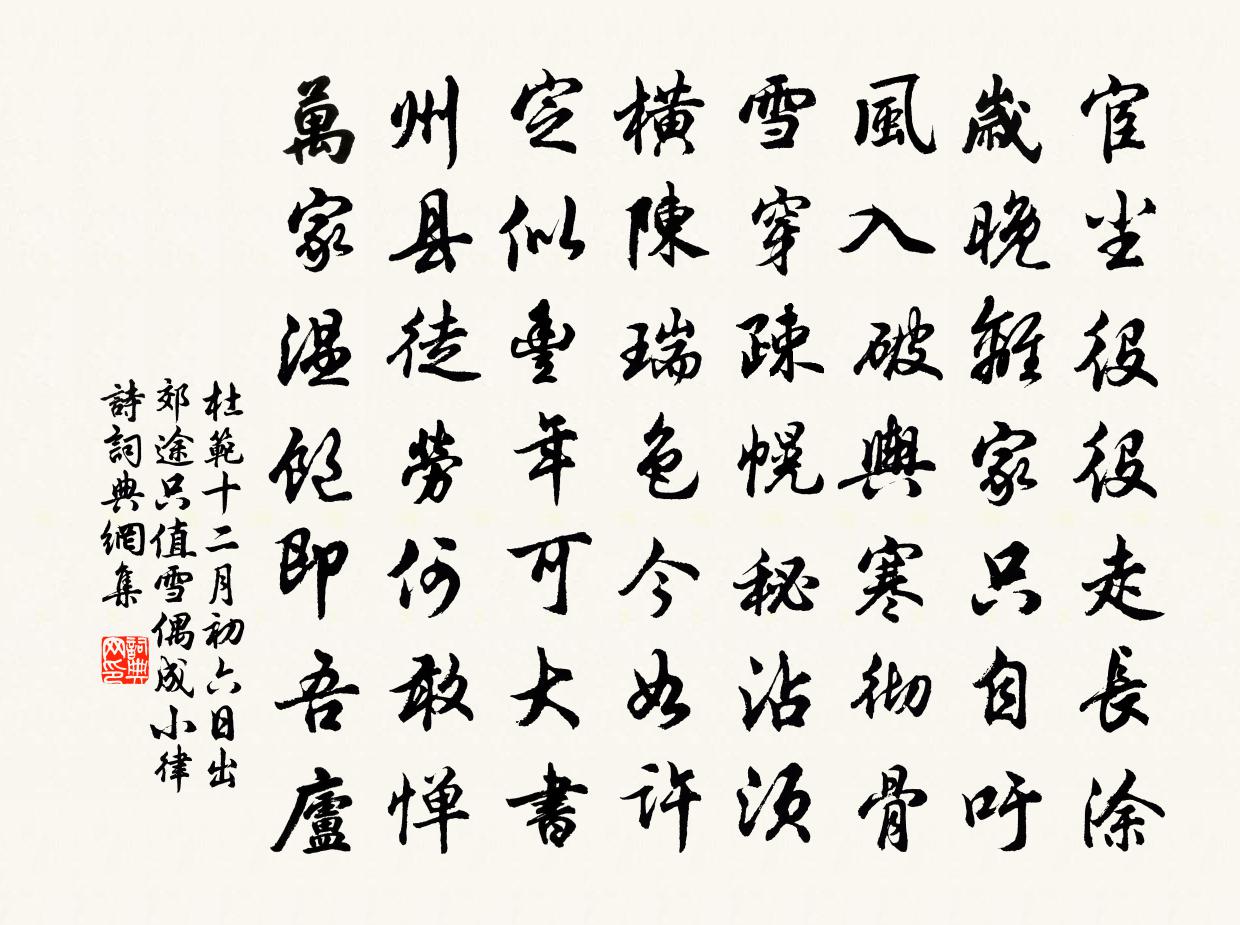 宦尘役役走長涂
歳晚離家只自吁
風入破輿寒彻骨
雪穿疎幌秘沾須
橫陳瑞色今如許
定似豐年可大書
州县徒勞何敢惮
萬家温飽即吾廬
杜範十二月初六日出
郊途只值雪偶成小律
詩詞典網集
詞典网印